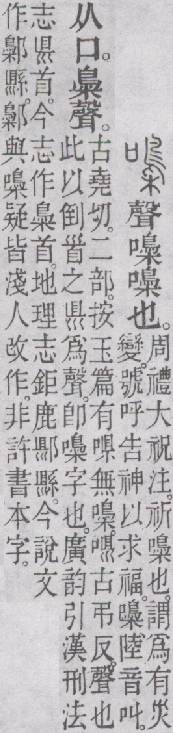 嘄
聲嘄嘄也。
周禮大祝注。祈嘄也。謂爲有災
變。號呼告神以求福。嘄陸音叫。
从口。梟聲。
古堯切。二部。按玉篇有無嘄。古弔反。聲也
此以倒首之県爲聲。卽嘄字也。廣韵引漢刑法
志県首。今志作梟首。地理志鉅鹿郻縣。今說文
作鄡縣。鄡與嘄疑皆淺人改作。非許書本字。